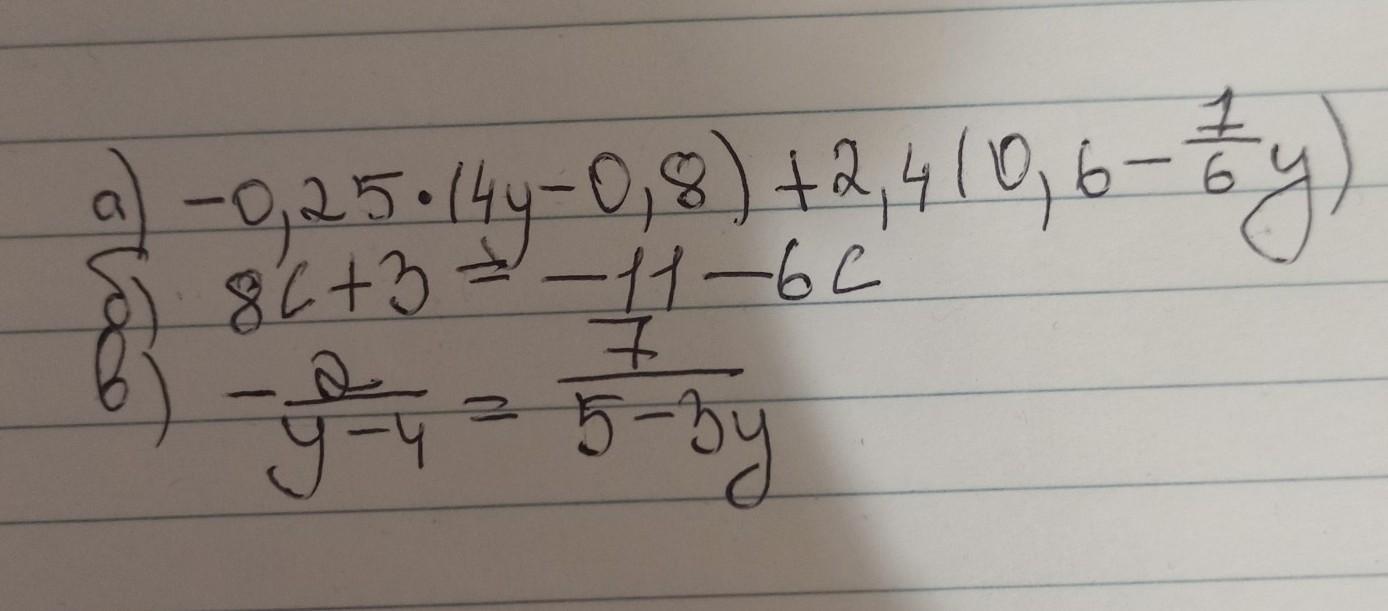 а) -0,25·(4y-0,8)+2,4(0,6-\frac{1}{6}y)
б) 8c+3=-11-6c
в) -\frac{2}{y-4}=\frac{7}{5-3y}